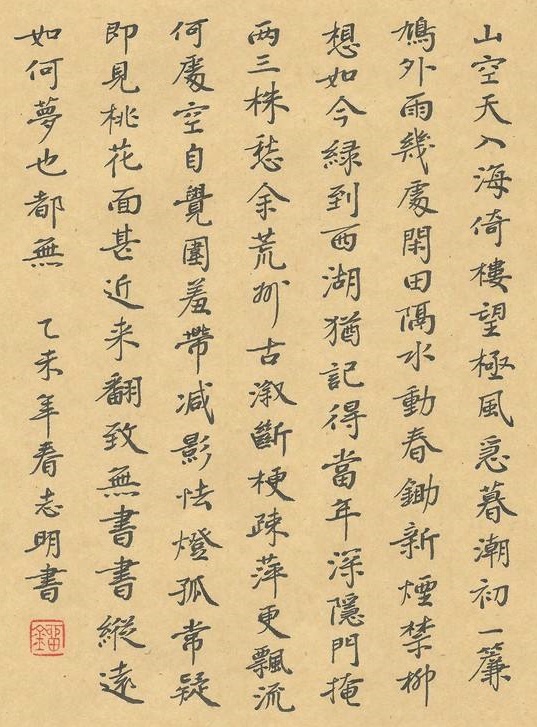 山空天入海倚樓望極風急暮潮初一簾
鳩外雨幾處閑田隔水動春鋤新煙禁柳
想如今緑到西湖猶記得當年深隱門掩
兩三株愁余荒州古溆斷梗疎萍更飄流
何處空自覺圍羞帶減影怯燈孤常疑
即見桃花面甚近来翻致無書書縱遠
如何夢也都無 乙未年春志明書